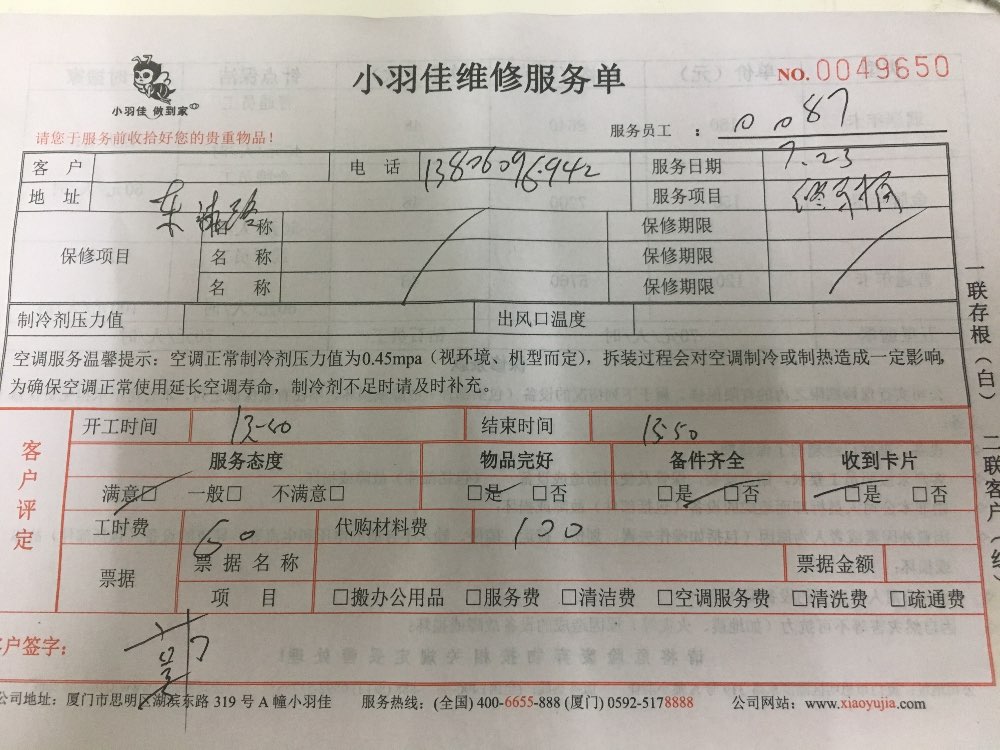 小羽佳 做到家
小羽佳维修服务单
NO. 0049650
请您于服务前收拾好您的贵重物品！
服务员工 ： 0087
客 户 电 话 13806096942 服务日期 7.23
地 址 东浦路 服务项目
保修项目 名 称 保修期限
名 称 保修期限
名 称 保修期限
制冷剂压力值 出风口温度
空调服务温馨提示：空调正常制冷剂压力值为0.45mpa（视环境、机型而定），拆装过程会对空调制冷或制热造成一定影响，
为确保空调正常使用延长空调寿命，制冷剂不足时请及时补充。
客户评定
开工时间 结束时间 15:50
服务态度 物品完好 备件齐全 收到卡片
满意□ 一般□ 不满意□ □是 □否 □是 □否 □是 □否
工时费 60 代购材料费 100
票据 票据名称 票据金额
项 目 □搬办公用品 □服务费 □清洁费 □空调服务费 □清洗费 □疏通费
客户签字：
公司地址：厦门市思明区湖滨东路 319 号 A 幢小羽佳 服务热线：(全国) 400-6655-888 (厦门) 0592-5178888 公司网站：www.xiaoyujia.com
一联存根（白） 二联客户（红）